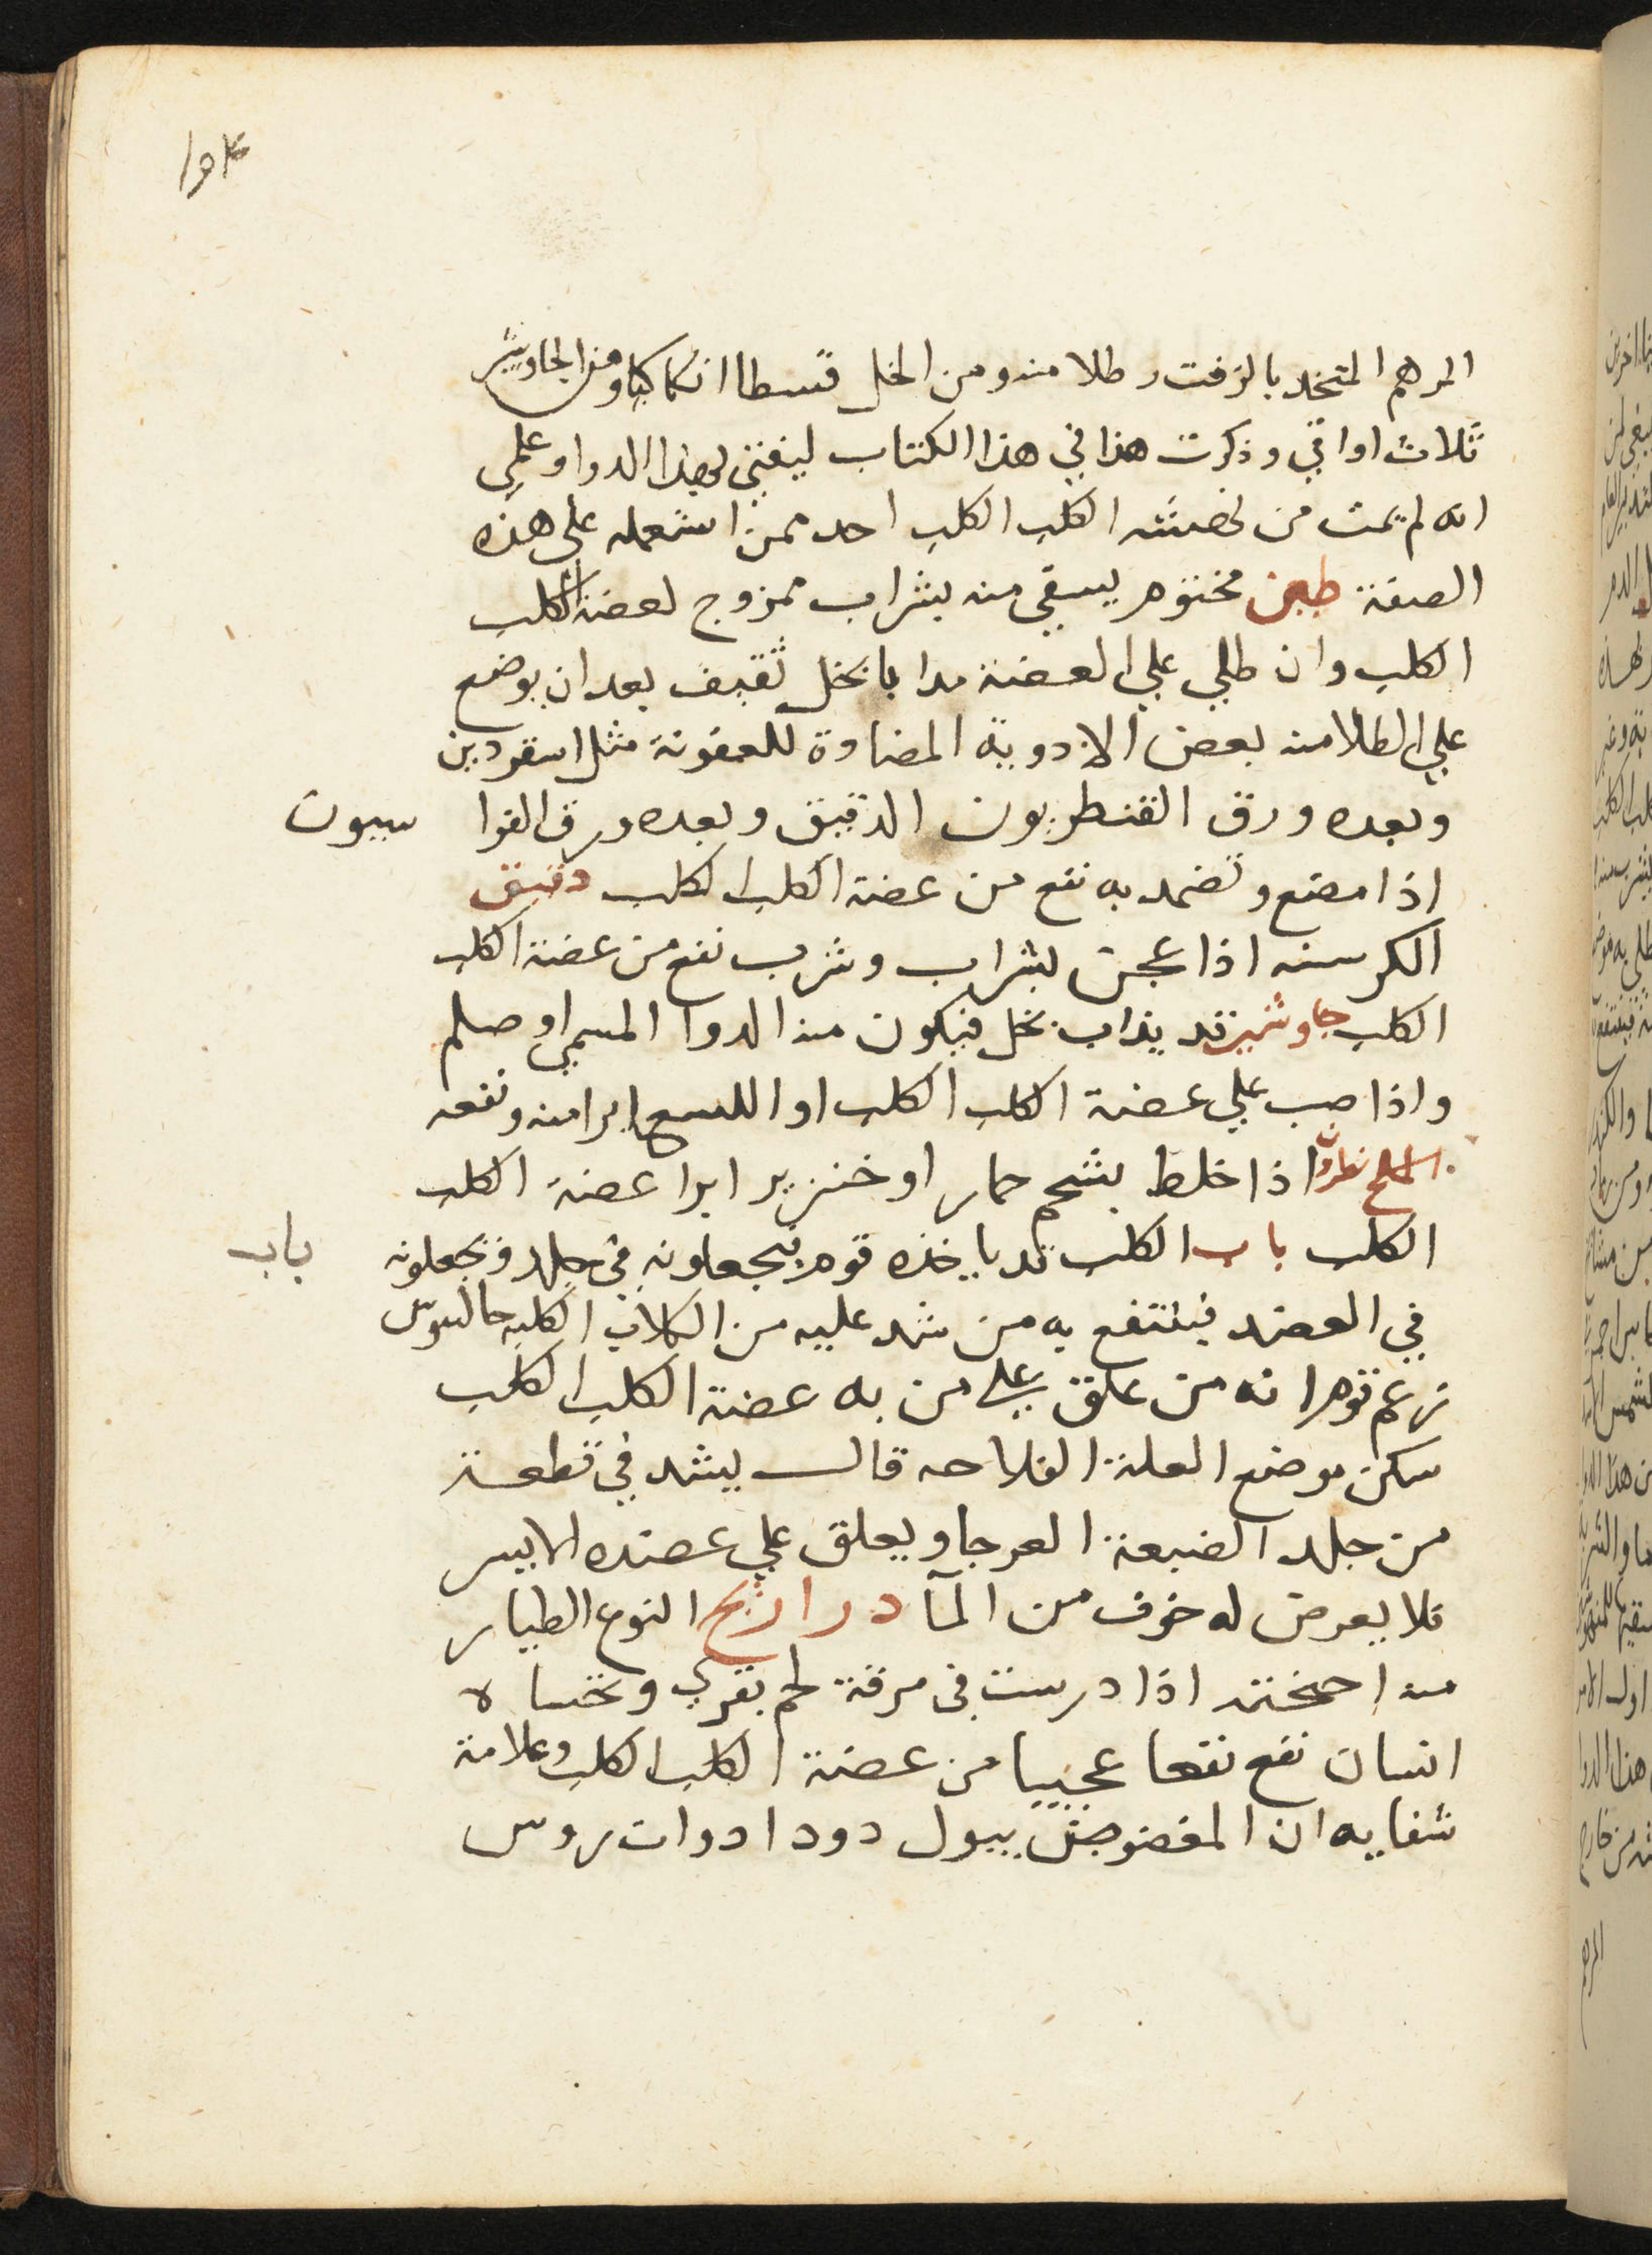 المرهم المتخد بالزفت رطلا منه ومن الخل قسطا انكاكيا ومن الجاوشير
ثلاث اواقي وذكرت هذا في هذا الكتاب ليفتني بهذا الدوا وعلمي
انه لم يمت من نهشته الكلب الكلب احد ممن استعمله على هذه
الصفة طين مختوم يسقي منه بشراب ممزوج لعضة الكلب
الكلب وان طلي علي العضة مدا بالخل ثقيف بعد ان يوضع
علي الطلا منه بعض الادوية المضادة للعفونة مثل اسقرديون
وبعده ورق القنطريون الدقيق وبعده ورق الفرا سيون
اذا مضغ وتضمد به نفع من عضة الكلب الكلب دقيق
الكرسنه اذا عجن بشراب وشرب نفع من عضة الكلب
الكلب جاوشير قد يذاب بخل فيكون منه الدوا المسمي اوصلم
واذا صب علي عضة الكلب الكلب او اللسع ابرا منه ونفعه
الملح نطرون اذا خلط بشحم حمار او خنزير ابرا عضة الكلب
الكلب باب الكلب قد ياخذه قوم فيجعلونه في جلد ويجعلونه باب
في العضد فينتفع به من شد عليه من الكلاب الكلبه جالينوس
زعم قوم انه من علق علي من به عضة الكلب الكلب
سكن موضع العلة الفلاحه قال يشد في قطعة
من جلد الضبعة العرجا ويعلق علي عضده الايسر
فلا يعرض له خوف من المآ دراريح النوع الطيار
منه اذا درست في مرقة لحم بقري وتحساه
انسان نفع نفعا عجيبا من عضة الكلب الكلب وعلامة
شفايه ان المعضوض يبول دودا دوات روس